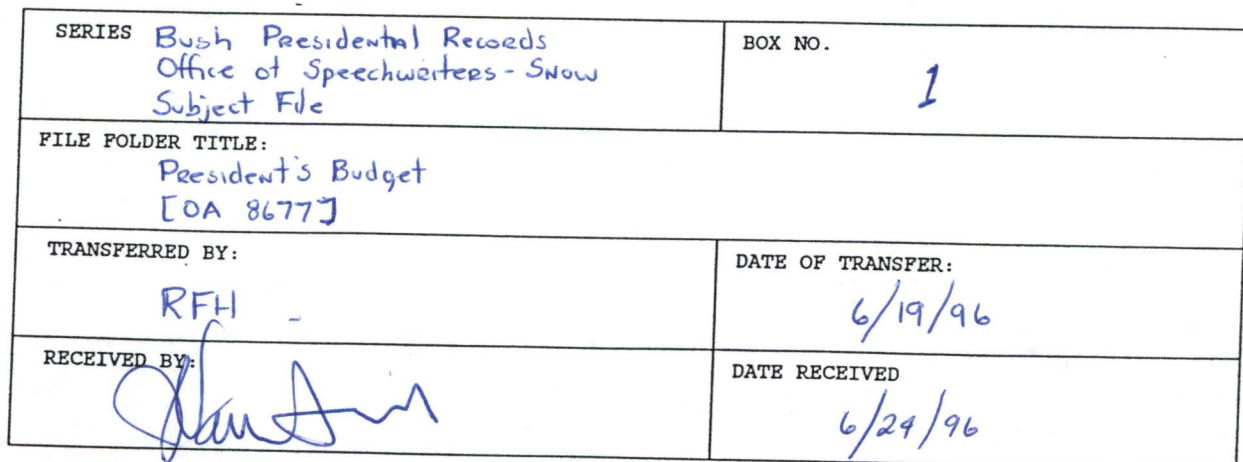 SERIES Bush Presidental Records
Office of Speechwriters - Snow
Subject File
BOX NO.
1
FILE FOLDER TITLE:
President's Budget
[OA 8677]
TRANSFERRED BY:
RFH
DATE OF TRANSFER:
6/19/96
RECEIVED BY:
DATE RECEIVED
6/24/96